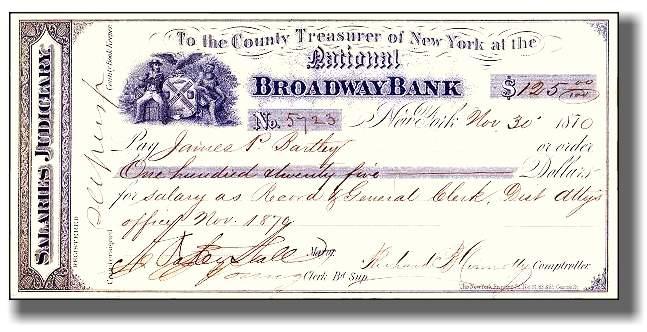 To the County Treasurer of New York at the
National
BROADWAY BANK
$125 00/100
No. 5723 New York Nov. 30 1870
Pay James P. Bartley or order
One hundred twenty five Dollars
for salary as Record & General Clerk, Dist Atty's
office Nov. 1870
A. Oakey Hall Mayor
Young Clerk Bd Sup. Richard B Connolly Comptroller
SALARIES JUDICIARY.
REGISTERED
Countersigned
County Book Keeper